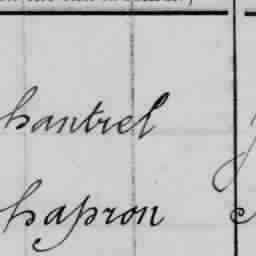 hantrel
hapron